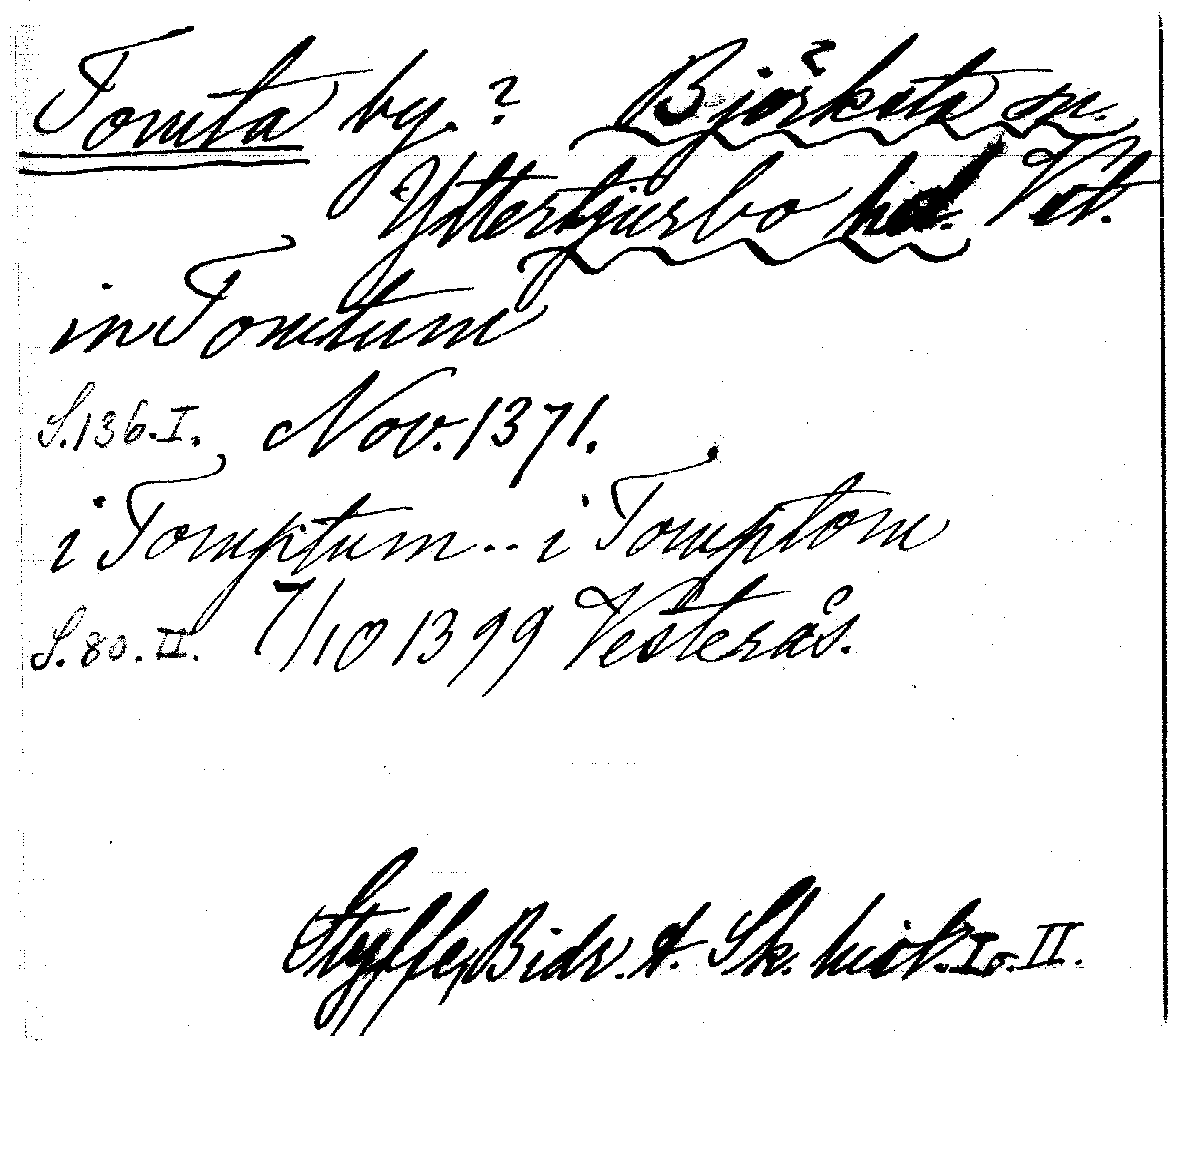 Tomta by.? Björksta sn.
Yttertjurbo hd. Vstl.
in Tomtum
S.136.I. Nov. 1371.
i Tomptum... i Tomptom
S.80.II. 7/10 1399 Vesterås.
Styffe, Bidr. t. Sk. hist. I o. II.